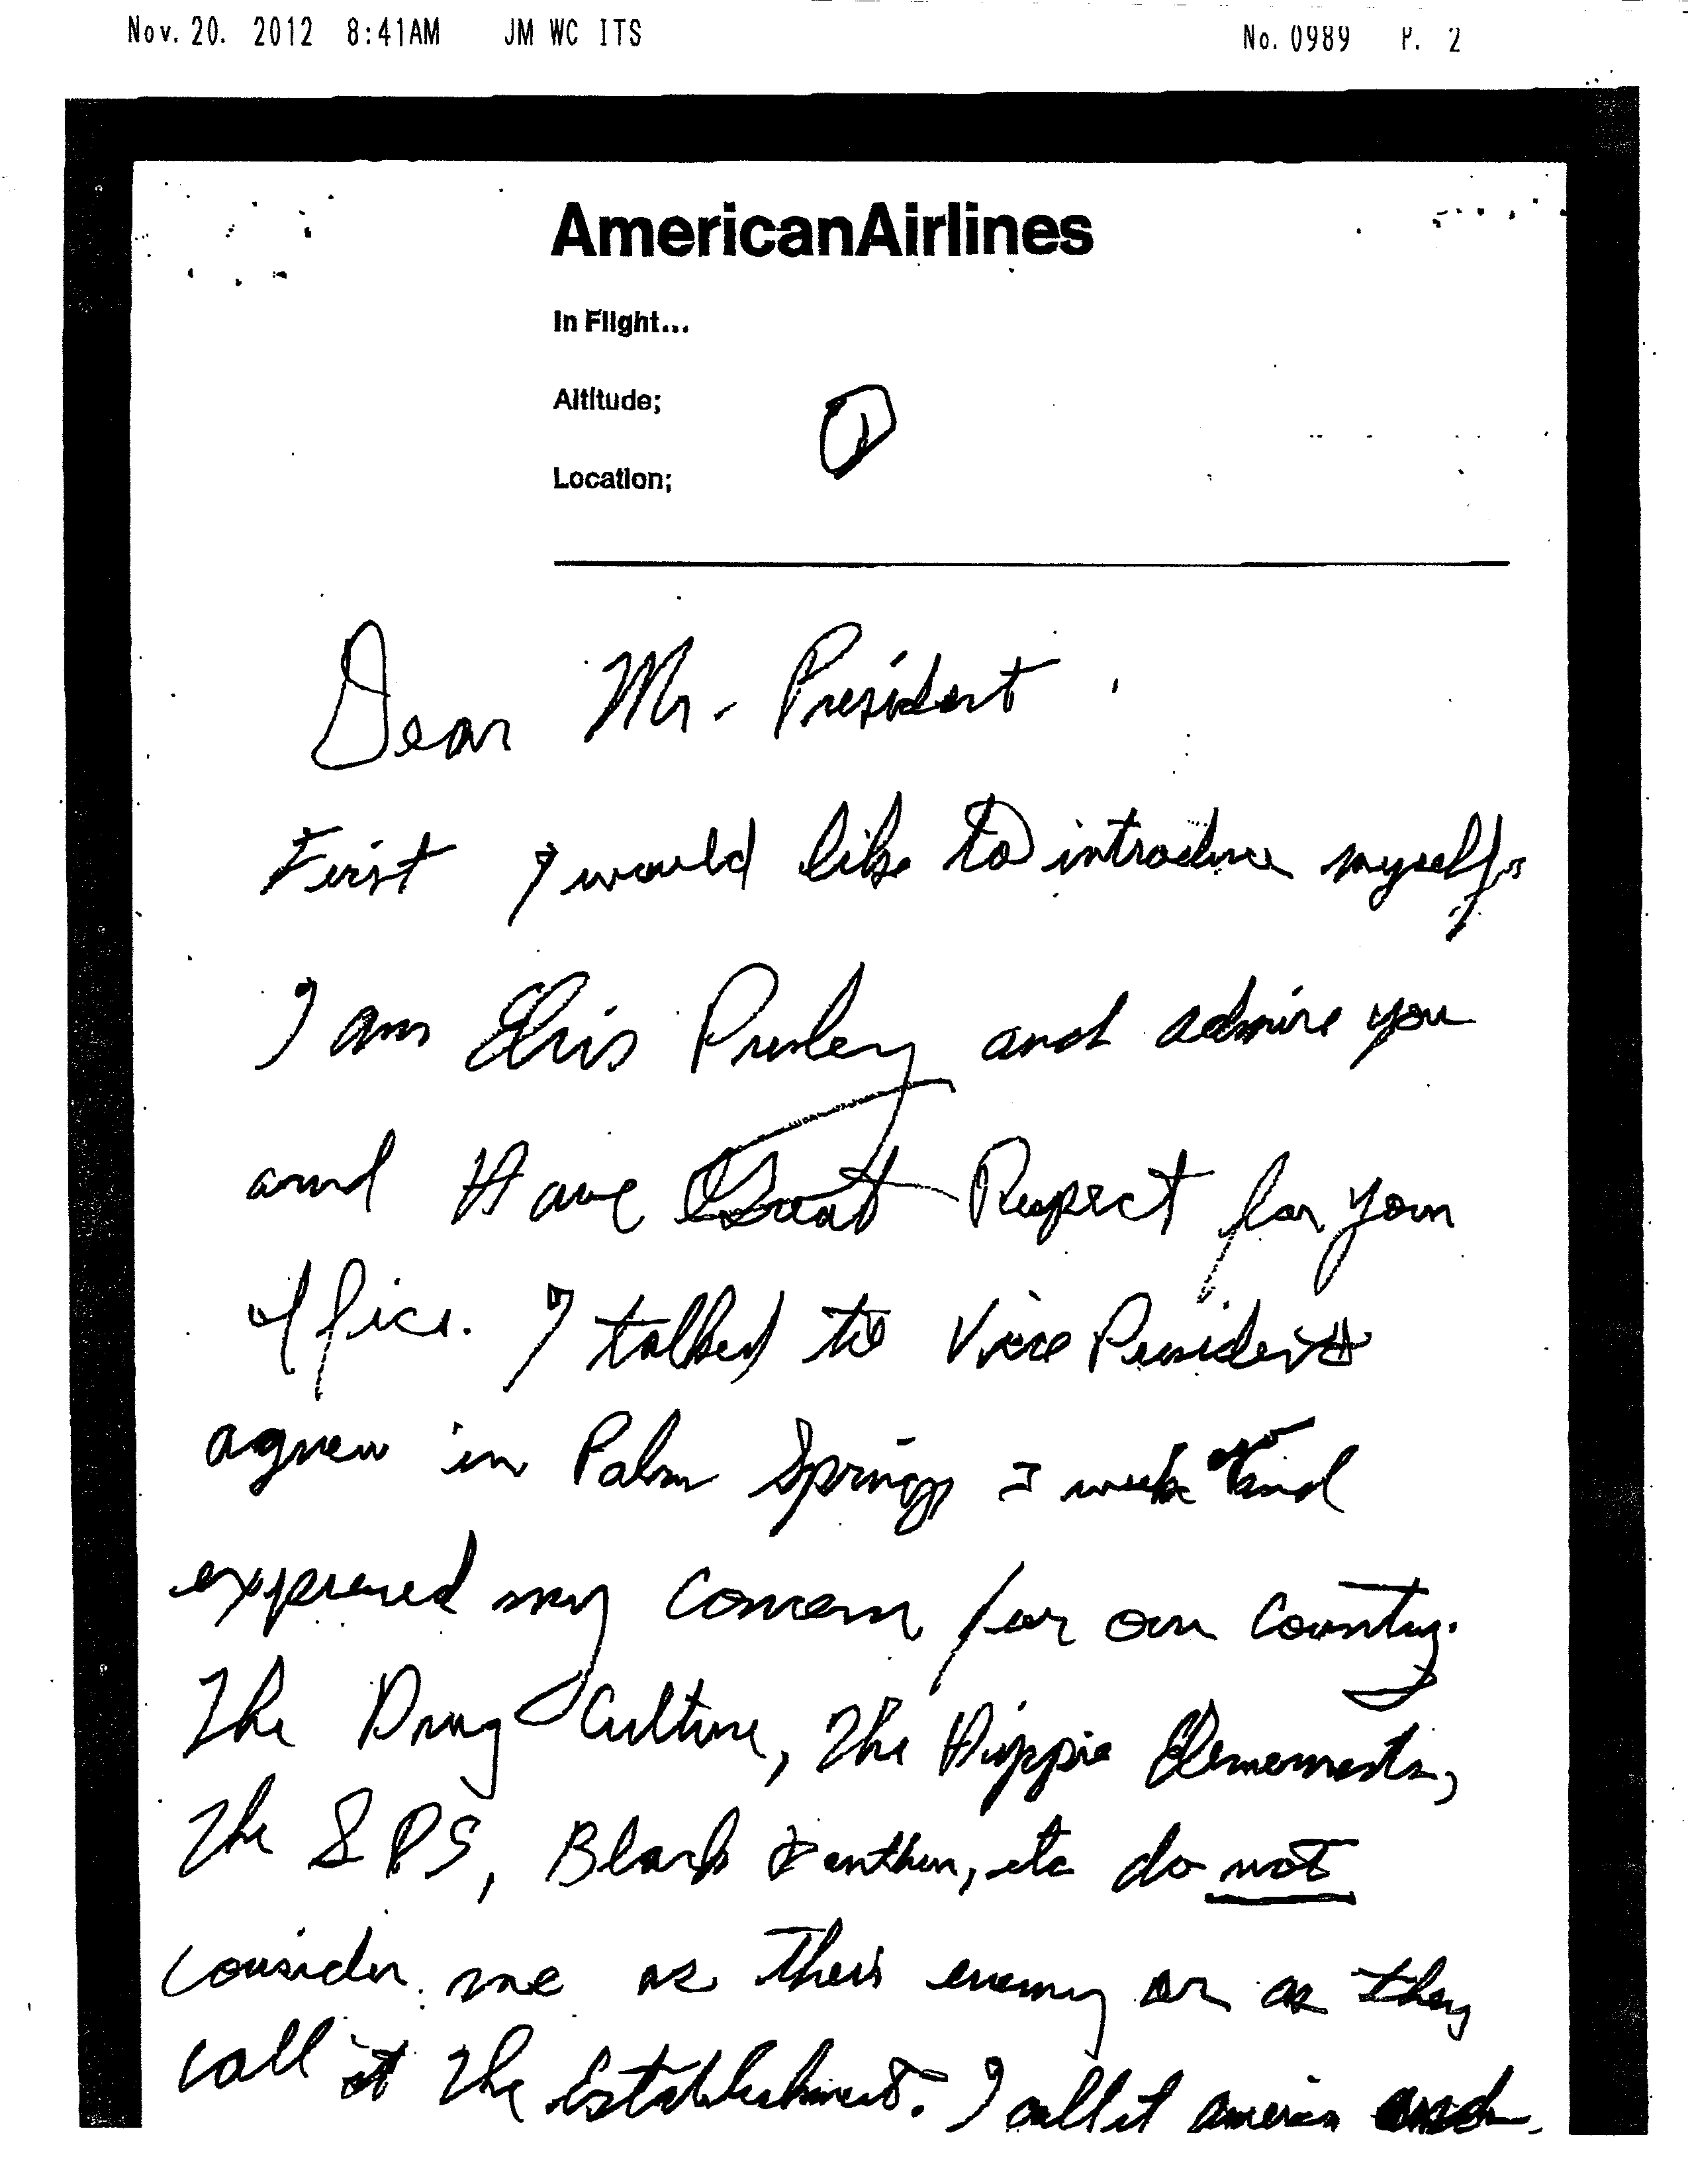 Nov. 20. 2012 8:41AM JM WC ITS No. 0989 P. 2
AmericanAirlines
In Flight...
Altitude;
Location;
1
Dear Mr. President
First I would like to introduce myself.
I am Elvis Presley and admire you
and Have Great Respect for your
office. I talked to Vice President
agnew in Palm Springs week and
expressed my concern for our country.
The Drug Culture, The Hippie Elements,
The SDS, Black Panthers, etc do not
consider me as their enemy or as they
call it The Establishment. I call it america and